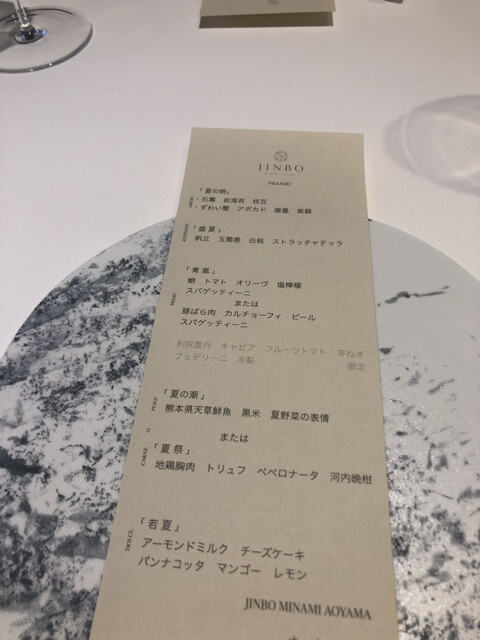 JINBO
PRANZO
「夏の暁」
・石蓴　岩海苔　枝豆
・ずわい蟹　アボカド　唐墨　紫蘇
「盛夏」
帆立　玉蜀黍　白桃　ストラッチャテッラ
PRIMO
「青嵐」
蛸　トマト　オリーヴ　塩檸檬
スパゲッティーニ
または
豚ばら肉　カルチョーフィ　ビール
スパゲッティーニ
利尻雲丹　キャビア　フルーツトマト　芽ねぎ
フェデリーニ　冷製　限定
PESCE
「夏の潮」
熊本県天草鮮魚　黒米　夏野菜の表情
O
または
CARNE
「夏祭」
地鶏胸肉　トリュフ　ペペロナータ　河内晩柑
DOLCE
「若夏」
アーモンドミルク　チーズケーキ
パンナコッタ　マンゴー　レモン
JINBO MINAMI AOYAMA